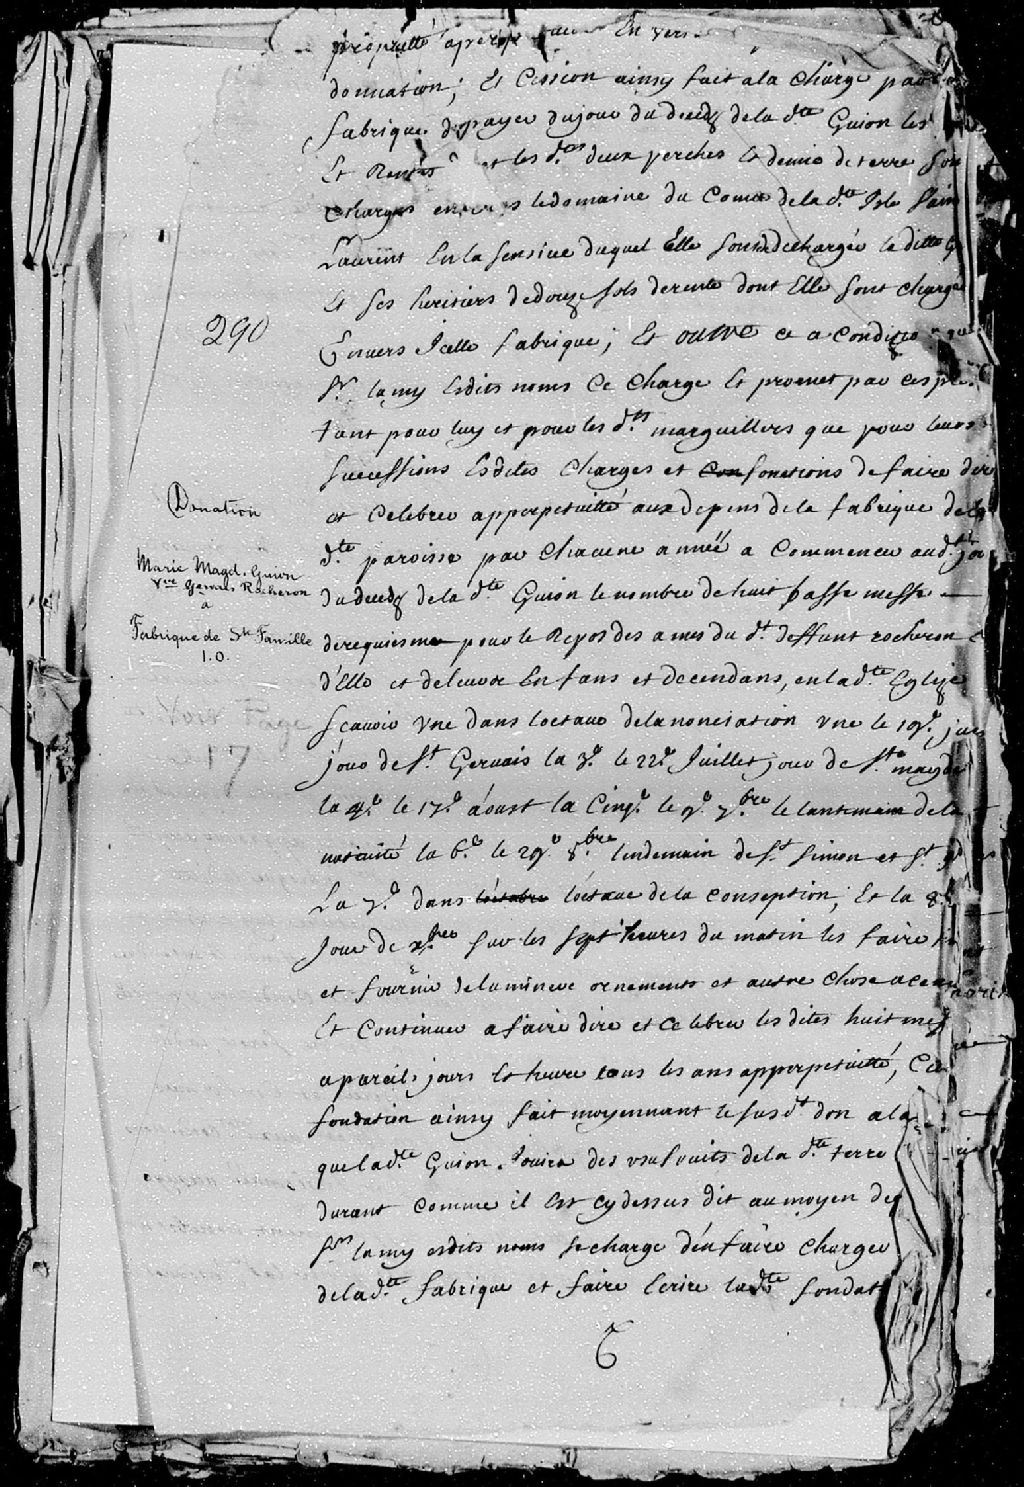 propriette
donnation; Et Cession ainsy fait a la Charge par
fabrique de payer du jour du deceds de la d.te Guion les
Et Rentes et les d.tes deux perches Et demie de terre son
Charges envers le domaine du Comté de la d.te Isle Sain
Laurent En la sensive duquel Elle sont dechargée le ditte G
Et ses heritiers de douze sols de rente dont Elle sont chargé
Envers Icelle fabrique; Et outre ce a Conditio que
Sr. lamy Esdits noms Ce Charge Et promet par ces pre
tant pour luy et pour les d.ts marguilliers que pour leurs
successions Esdites Charges et fonctions de faire dire
et Celebrer apperpetuitté aux depens de la fabrique de la
d.te paroisse par Chacune année a Commencer aud.t jou
du deceds de la d.te Guion le nombre de huit basse messe
de requiesme pour le Repos des ames du d.t deffunt rocheron
d'Elle et de leurs Enfans et decendans, en la d.te Eglize
Scavoir Vne dans loctave de lanonciation vne le 19.e juin
jour de St. Gervais la 3.e le 22.e Juillet jour de Ste. magde
la 4.e le 17.e aoust la Cinq.e le 9.e 7.bre le lantemain de la
nativité la 6.e le 29.e 8.bre lendemain de St. Simon et St. J
La 7.e dans loctabre loctave de la conseption; Et la 8.e
Jour de x.bre sur les sept heures du matin les faire
et fournir de luminere ornements et autre chose a ce
Et Continuer a faire dire et celebrer les dites huit mes
a pareils jours Et heure tous les ans apperpetuitté, Ce
fondation ainsy fait moyennant le susd.t don a la
que la d.te Guion Jouira des vsufruits de la d.te terre
durant comme il Est cy dessus dit au moyen de
Srs. lamy esdits noms se charge d'en faire Charger
de la d.te fabrique et faire Ecrire la d.te fondat
290
Donation
Marie Magd. Guion
Vve Gervais Rocheron
à
Fabrique de Ste Famille
I.O.
Voir Page
17